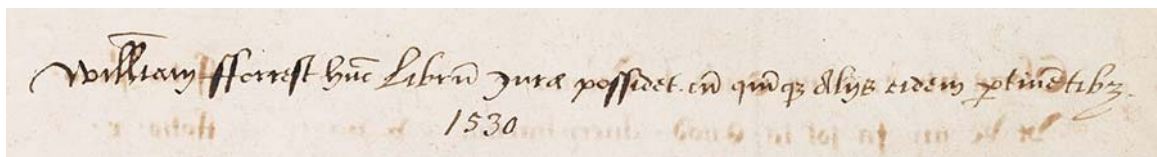 William fforrest hūc Librū Jure possidet. cū quīqꝫ Alijs eidem ꝑtinētibꝫ.
1530